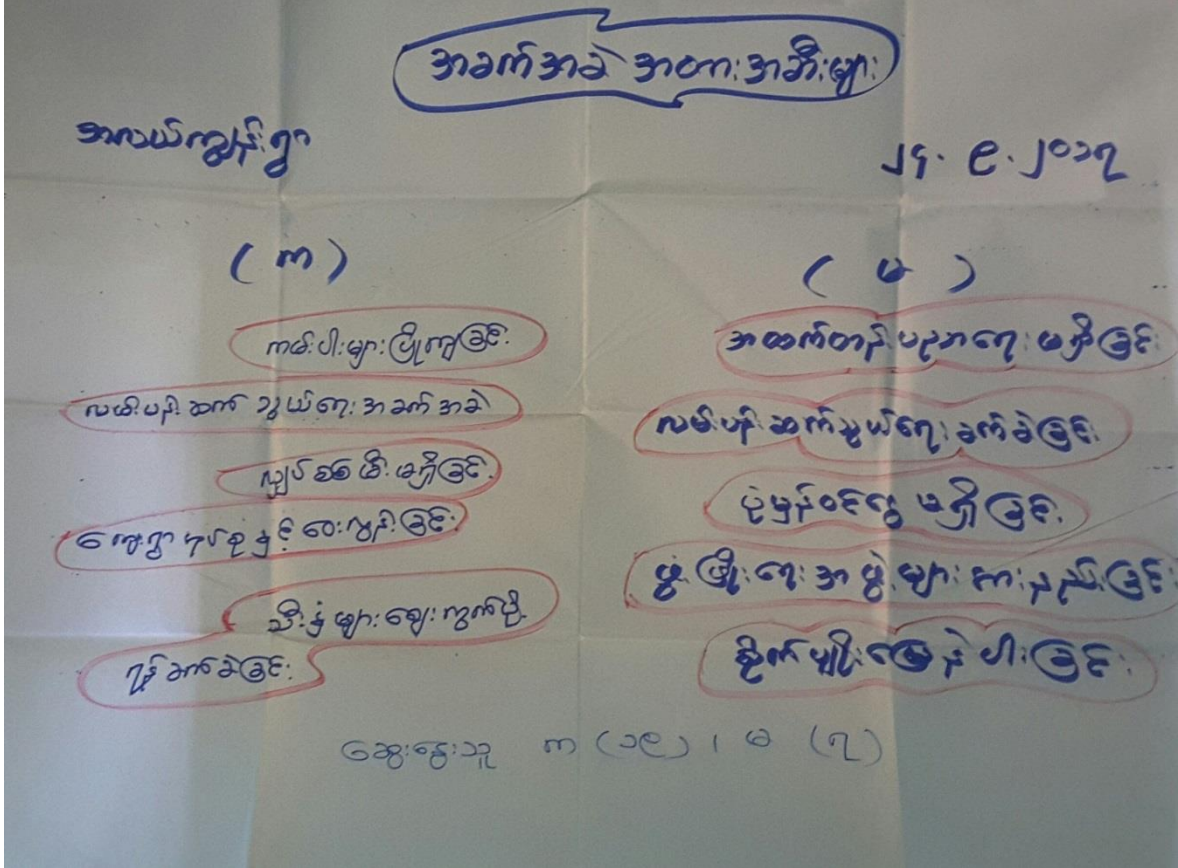 အခက်အခဲ အတားအဆီးများ
အလယ်ကျွန်းရွာ
၂၄. ၉. ၂၀၁၇
(က)
ကမ်းပါးများပြိုကျခြင်း
လမ်းပန်းဆက်သွယ်ရေးအခက်အခဲ
လျှပ်စစ်မီးမရှိခြင်း
ကျေးရွာအုပ်စုနှင့်ဝေးလွန်းခြင်း
သီးနှံများဈေးကွက်ပို့
ရန်ခက်ခဲခြင်း
(မ)
အထက်တန်းပညာရေးမရှိခြင်း
လမ်းပန်းဆက်သွယ်ရေးခက်ခဲခြင်း
ပုံမှန်ဝင်ငွေမရှိခြင်း
ဖွံ့ဖြိုးရေးအဖွဲ့များအားနည်းခြင်း
စိုက်ပျိုးမြေနဲပါးခြင်း
ဆွေးနွေးသူ က (၁၉) ၊ မ (၇)